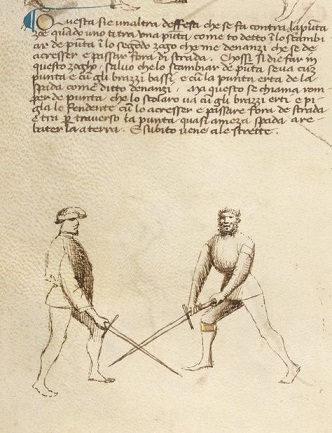 Questa sie unaltra deffesa che se fa contra la punta
zoe quado uno te tra una puta, como to detto i lo scambi
ar de puta i lo segōdo zogo che me denanzi che se de
acresser e passar fora di strada. Chossi si die far in
questo zogho, salvo che lo scambiar de puta se va cum
punta e cū gli brazzi bassi, e cū la punta erta de la
spada como ditto denanzi. Ma questo se chiama rom
per de punta, che lo scolaro va cū gli brazzi erti e pi
gla lo fendente cū lo acresser e passare fora de strada
e tra p traverso la punta quasi a meza spada a re
baterla a terra. E subito vene a le strette.